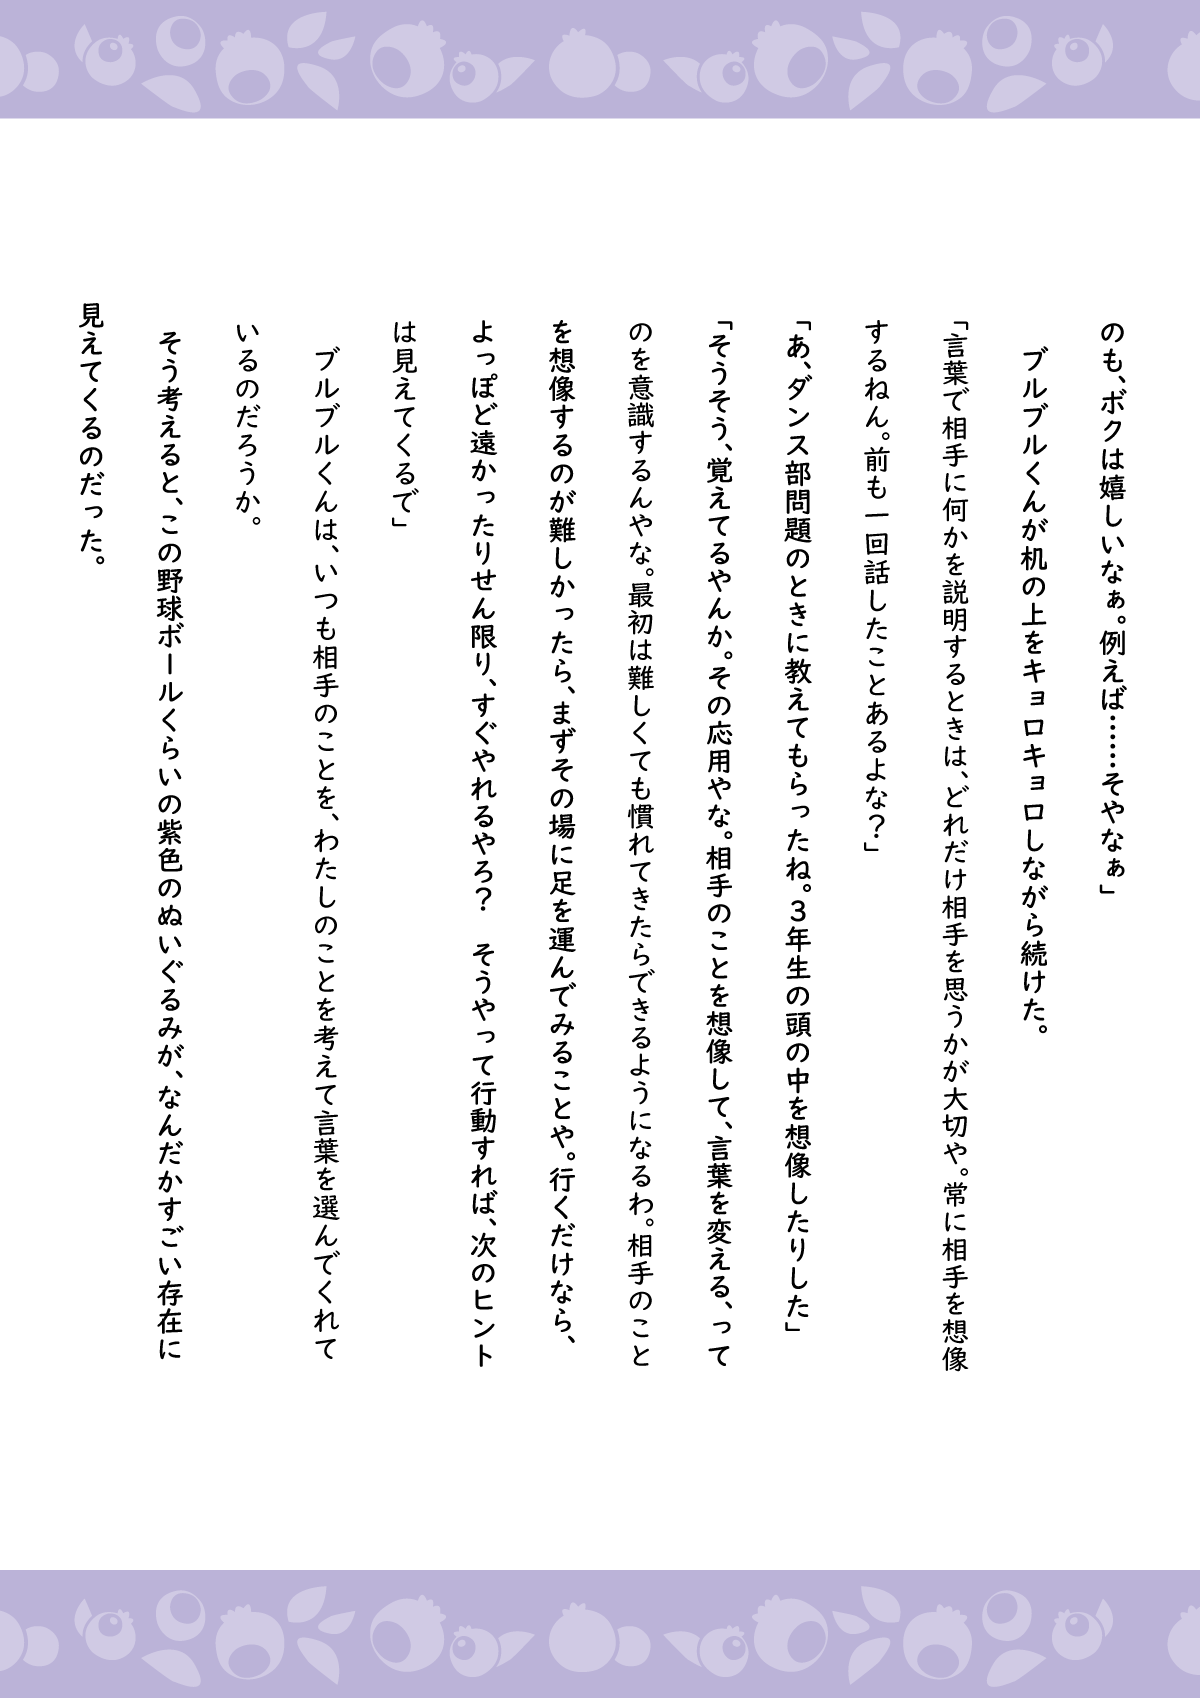 のも、ボクは嬉しいなぁ。例えば……そやなぁ」
　ブルブルくんが机の上をキョロキョロしながら続けた。
「言葉で相手に何かを説明するときは、どれだけ相手を思うかが大切や。常に相手を想像
するねん。前も一回話したことあるよな？」
「あ、ダンス部問題のときに教えてもらったね。３年生の頭の中を想像したりした」
「そうそう、覚えてるやんか。その応用やな。相手のことを想像して、言葉を変える、って
のを意識するんやな。最初は難しくても慣れてきたらできるようになるわ。相手のこと
を想像するのが難しかったら、まずその場に足を運んでみることや。行くだけなら、
よっぽど遠かったりせん限り、すぐやれるやろ？　そうやって行動すれば、次のヒント
は見えてくるで」
　ブルブルくんは、いつも相手のことを、わたしのことを考えて言葉を選んでくれて
いるのだろうか。
　そう考えると、この野球ボールくらいの紫色のぬいぐるみが、なんだかすごい存在に
見えてくるのだった。